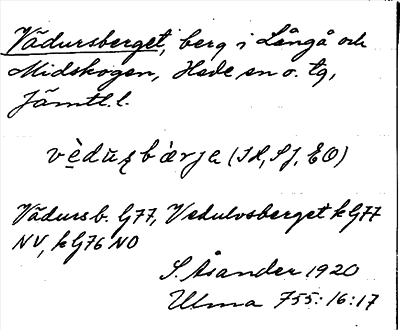 Vädursberget, berg i Långå och
Midskogen, Hede sn o. tg,
Jämtl. l.
(SH, SJ, EO)
Vädursb. G77, Vedulvsberget kG77
NV, kG76 NO
S. Åsander 1920
Ulma 755:16:17